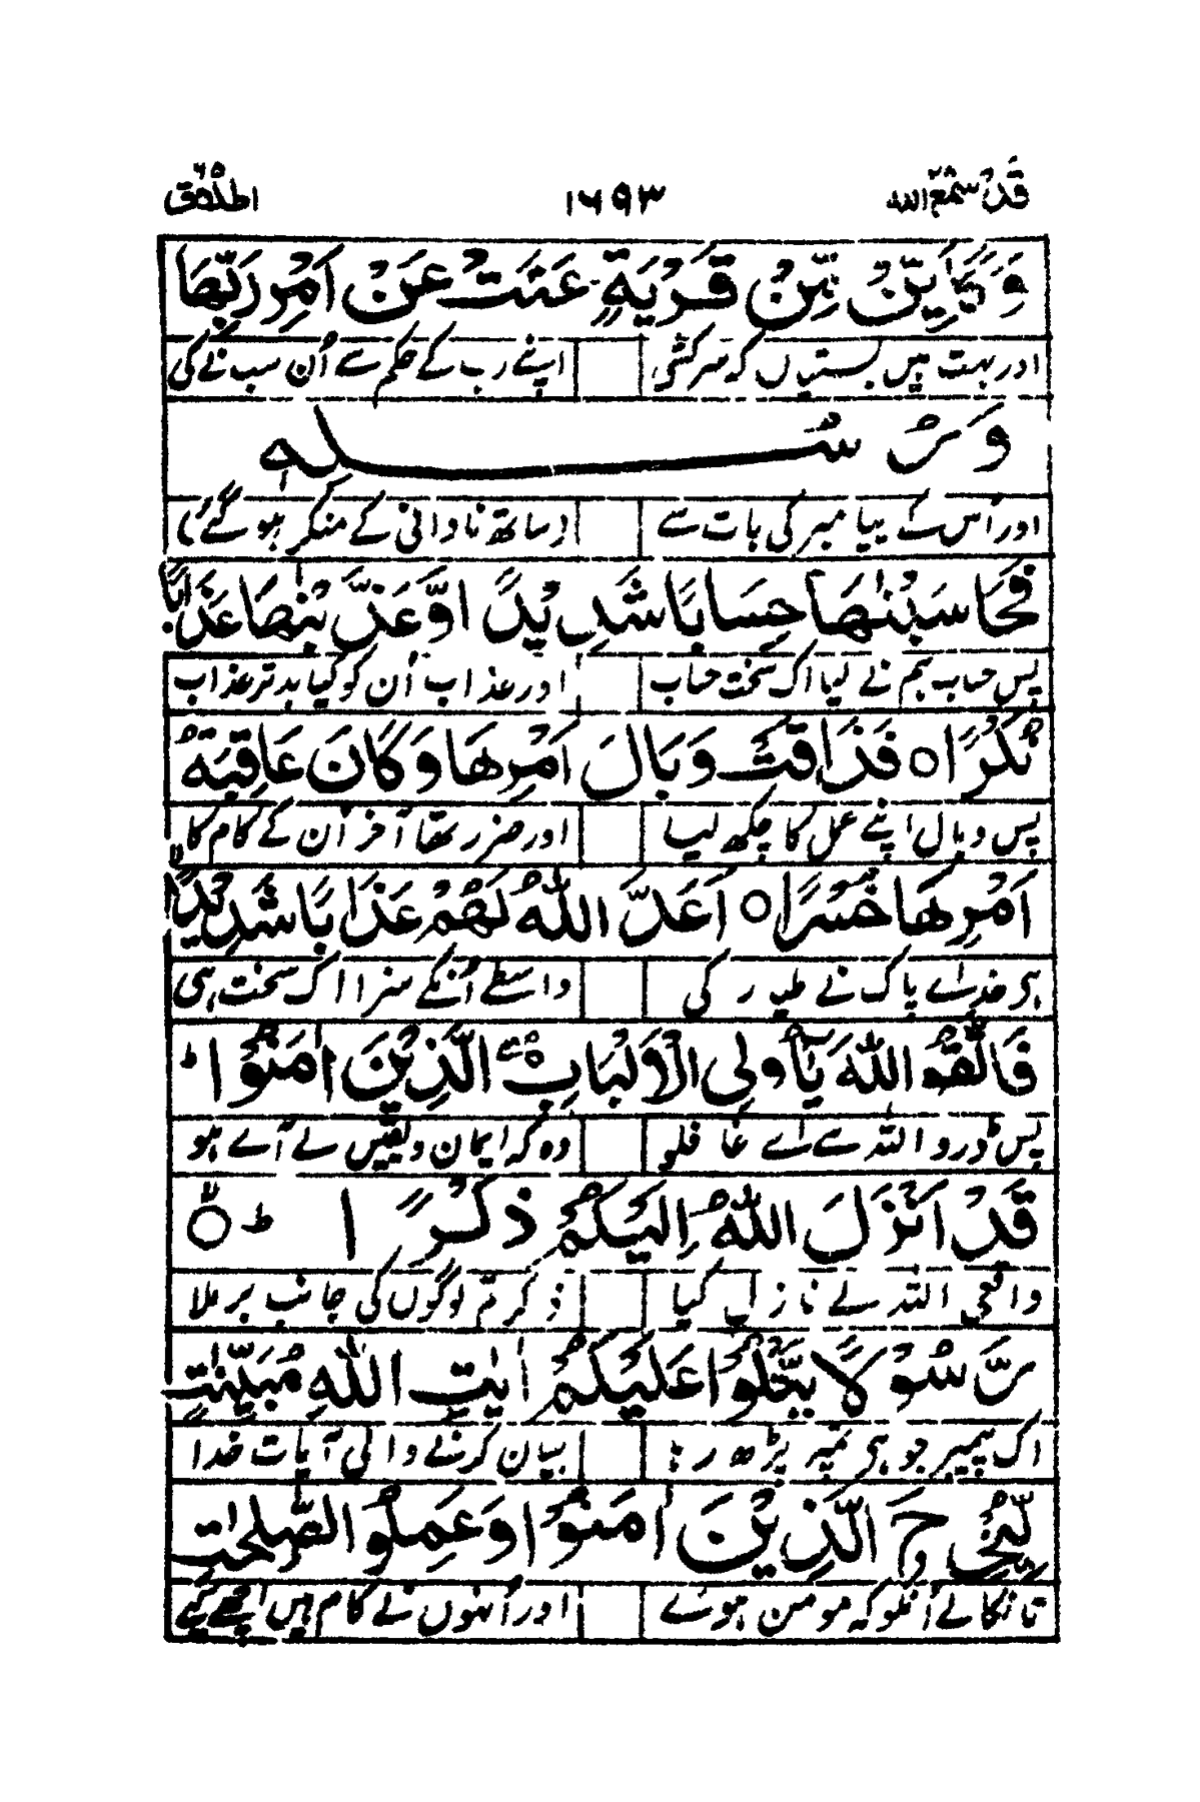 قَدْ سَمِعَ اللہ ۲۸ ۱۶۹۳ الطلاق ۶۵
وَكَاَيِّنْ مِّنْ قَرْيَةٍ عَتَتْ عَنْ اَمْرِ رَبِّهَا
اور بہت ہیں بستیاں کہ سرکشی اپنے رب کے حکم سے اُن سب نے کی
وَرُسُلِهٖ
اور اُس کے پیامبر کی بات سے (ساتھ نادانی کے منکر ہو گئے)
فَحَاسَبْنٰهَا حِسَابًا شَدِيْدًا وَّعَذَّبْنٰهَا عَذَابًا
پس حساب ہم نے لیا اک سخت حساب اور عذاب اُن کو کیا بدتر عذاب
نُّكْرًا ○ فَذَاقَتْ وَبَالَ اَمْرِهَا وَكَانَ عَاقِبَةُ
پس وبال اپنے عمل کا چکھ لیا اور ضرر تھا آخر اُن کے کام کا
اَمْرِهَا خُسْرًا ○ اَعَدَّ اللّٰهُ لَهُمْ عَذَابًا شَدِيْدًا
ہر خدائے پاک نے طیار کی واسطے اُنکے سزا اک سخت ہی
فَاتَّقُوا اللّٰهَ يٰٓاُولِى الْاَلْبَابِ الَّذِيْنَ اٰمَنُوْا ط
پس ڈرو اللہ سے اے عاقلو وہ کہ ایمان و یقیں لے آئے ہو
قَدْ اَنْزَلَ اللّٰهُ اِلَيْكُمْ ذِكْرًا ط ○
واقعی اللہ نے نازل کیا ذکر تم لوگوں کی جانب برملا
رَّسُوْلًا يَّتْلُوْا عَلَيْكُمْ اٰيٰتِ اللّٰهِ مُبَيِّنٰتٍ
اک پیمبر جو ہر تمپر پڑھ رہا بیان کرنے والی آیات خدا
لِّيُخْرِجَ الَّذِيْنَ اٰمَنُوْا وَعَمِلُوا الصّٰلِحٰتِ
تا نکالے اُنکو کہ مومن ہوئے اور اُنہوں نے کام ہیں اچھے کئے